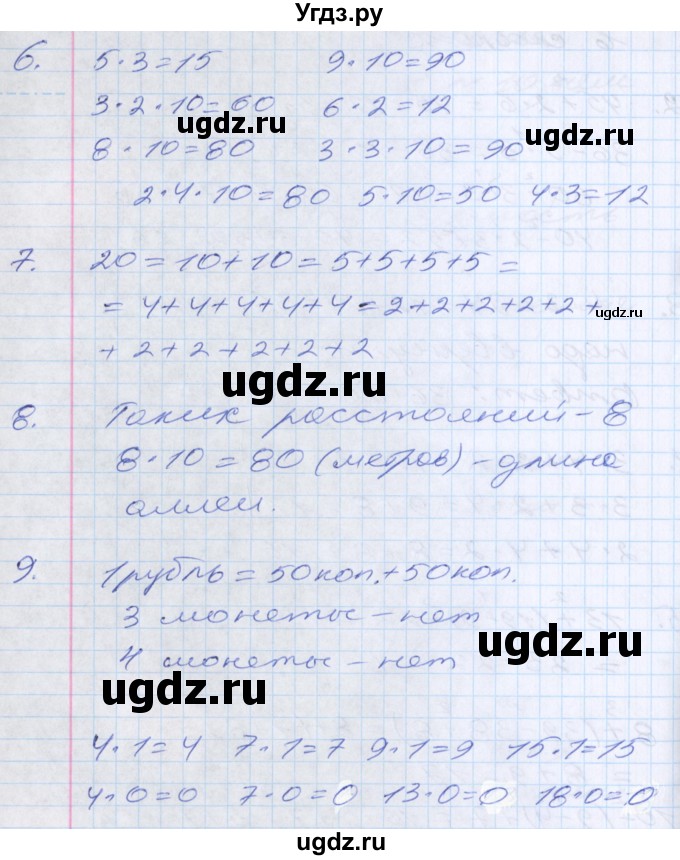 Угдз.ру
6. 5·3=15 9·10=90
3·2·10=60 6·2=12
ugdz.ru
8·10=80 3·3·10=90
ugdz.ru
2·4·10=80 5·10=50 4·3=12
7. 20=10+10=5+5+5+5=
=4+4+4+4+4=2+2+2+2+2+
ugdz.ru
+2+2+2+2+2
ugdz.ru
8. Таких расстояний-8
8·10=80 (метров)-длина
аллеи.
9. 1рубль=50коп.+50коп.
3 монеты-нет
ugdz.ru
4 монеты-нет
ugdz.ru
4·1=4 7·1=7 9·1=9 15·1=15
4·0=0 7·0=0 13·0=0 18·0=0
ugdz.ru